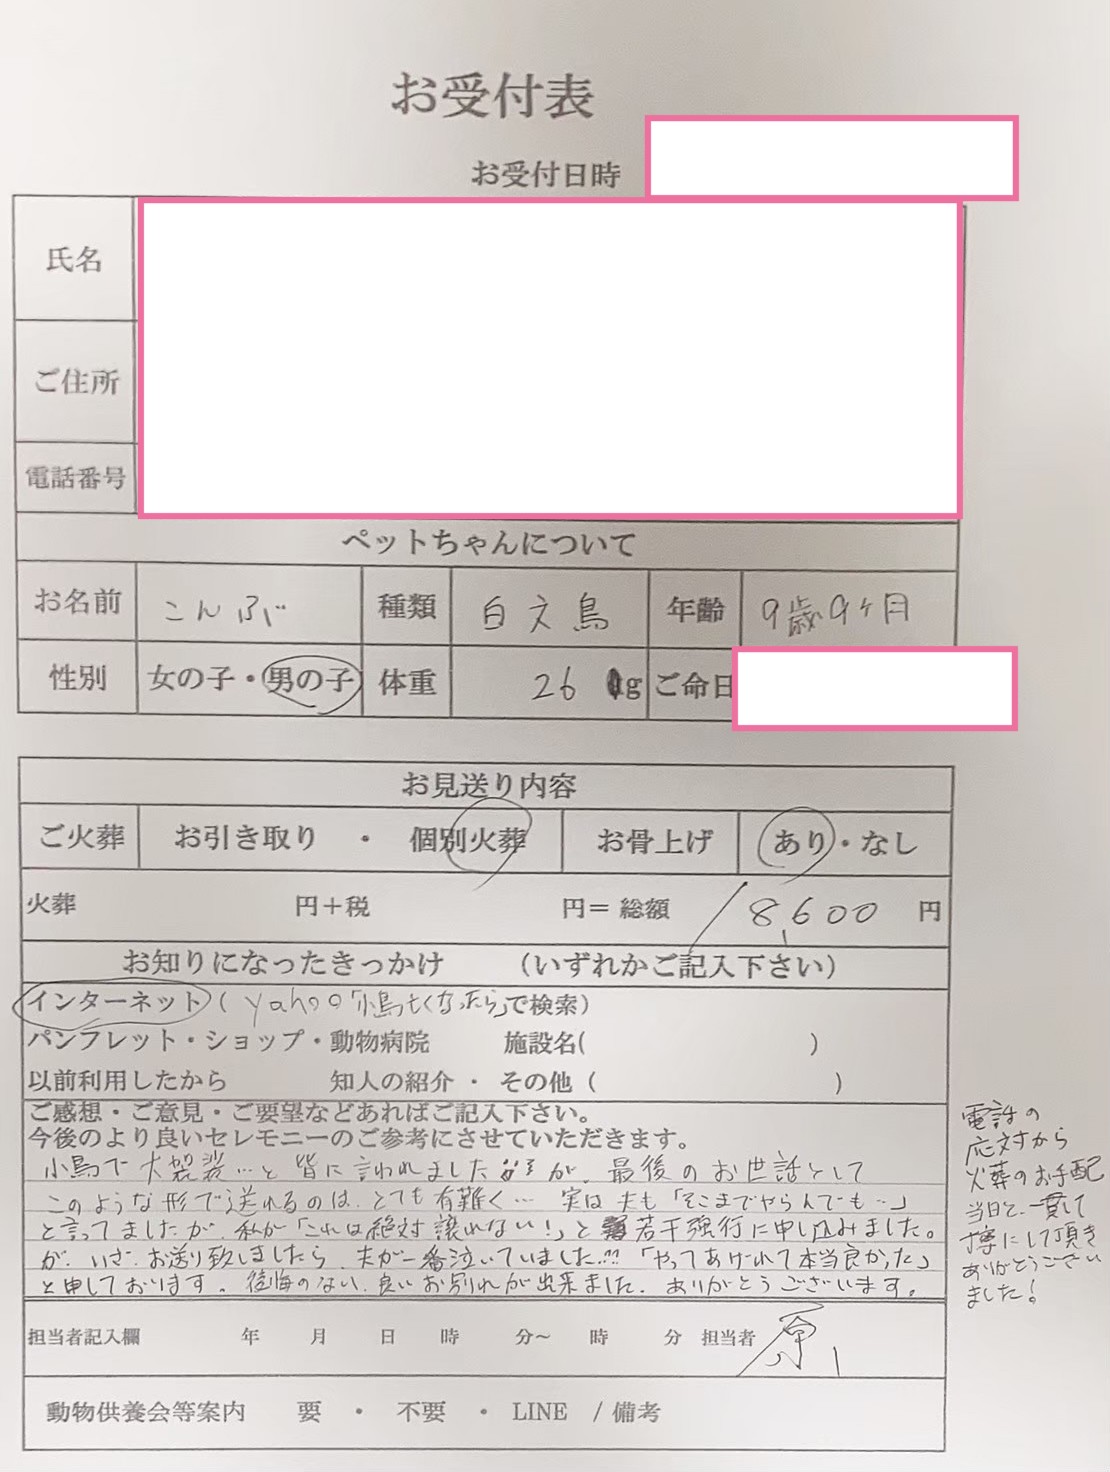 お受付表
お受付日時
氏名
ご住所
電話番号
ペットちゃんについて
お名前 こんぶ 種類 白文鳥 年齢 9歳9ヶ月
性別 女の子・男の子 体重 26 g ご命日
お見送り内容
ご火葬 お引き取り ・ 個別火葬 お骨上げ あり・なし
火葬 円+税 円= 総額 8,600 円
お知りになったきっかけ (いずれかご記入下さい)
インターネット(yahoo「小鳥亡くなったら」で検索)
パンフレット・ショップ・動物病院 施設名( )
以前利用したから 知人の紹介 ・ その他 ( )
ご感想・ご意見・ご要望などあればご記入下さい。
今後のより良いセレモニーのご参考にさせていただきます。
小鳥で大袈裟…と皆に言われましたが、最後のお世話として
このような形で送れるのは、とても有難く… 実は夫も「そこまでやらんでも…」
と言ってましたが、私が「これは絶対譲れない!」と若干強行に申し込みました。
が、いざ、お送り致しましたら、夫が一番泣いていました!!!「やってあげれて本当良かった」
と申しております。後悔のない、良いお別れが出来ました。ありがとうございます。
電話の
応対から
火葬のお手配
当日と、一貫して
丁寧にして頂き
ありがとうござい
ました!
担当者記入欄 年 月 日 時 分〜 時 分 担当者 原
動物供養会等案内 要 ・ 不要 ・ LINE / 備考